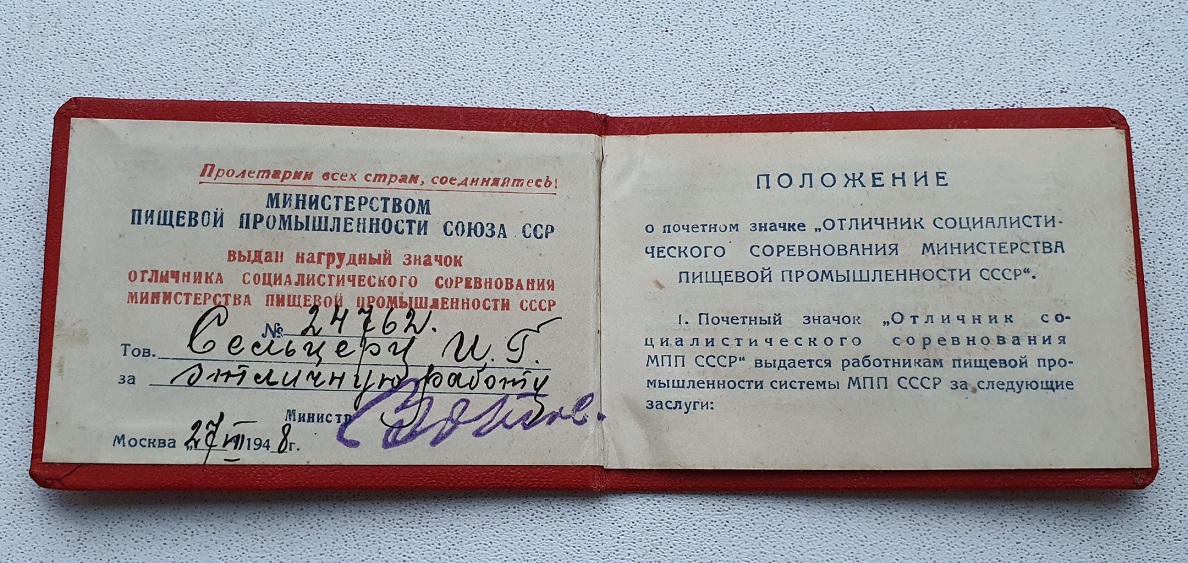 Пролетарии всех стран, соединяйтесь!
МИНИСТЕРСТВОМ
ПИЩЕВОЙ ПРОМЫШЛЕННОСТИ СОЮЗА ССР
ВЫДАН НАГРУДНЫЙ ЗНАЧОК
ОТЛИЧНИКА СОЦИАЛИСТИЧЕСКОГО СОРЕВНОВАНИЯ
МИНИСТЕРСТВА ПИЩЕВОЙ ПРОМЫШЛЕННОСТИ СССР
№ 24762.
Тов. Сельцеру И. Г.
за отличную работу
Министр
Москва „27 VII 1948 г.
ПОЛОЖЕНИЕ
о почетном значке „ОТЛИЧНИК СОЦИАЛИСТИ-
ЧЕСКОГО СОРЕВНОВАНИЯ МИНИСТЕРСТВА
ПИЩЕВОЙ ПРОМЫШЛЕННОСТИ СССР“.
1. Почетный значок „Отличник со-
циалистического соревнования
МПП СССР“ выдается работникам пищевой про-
мышленности системы МПП СССР за следующие
заслуги: